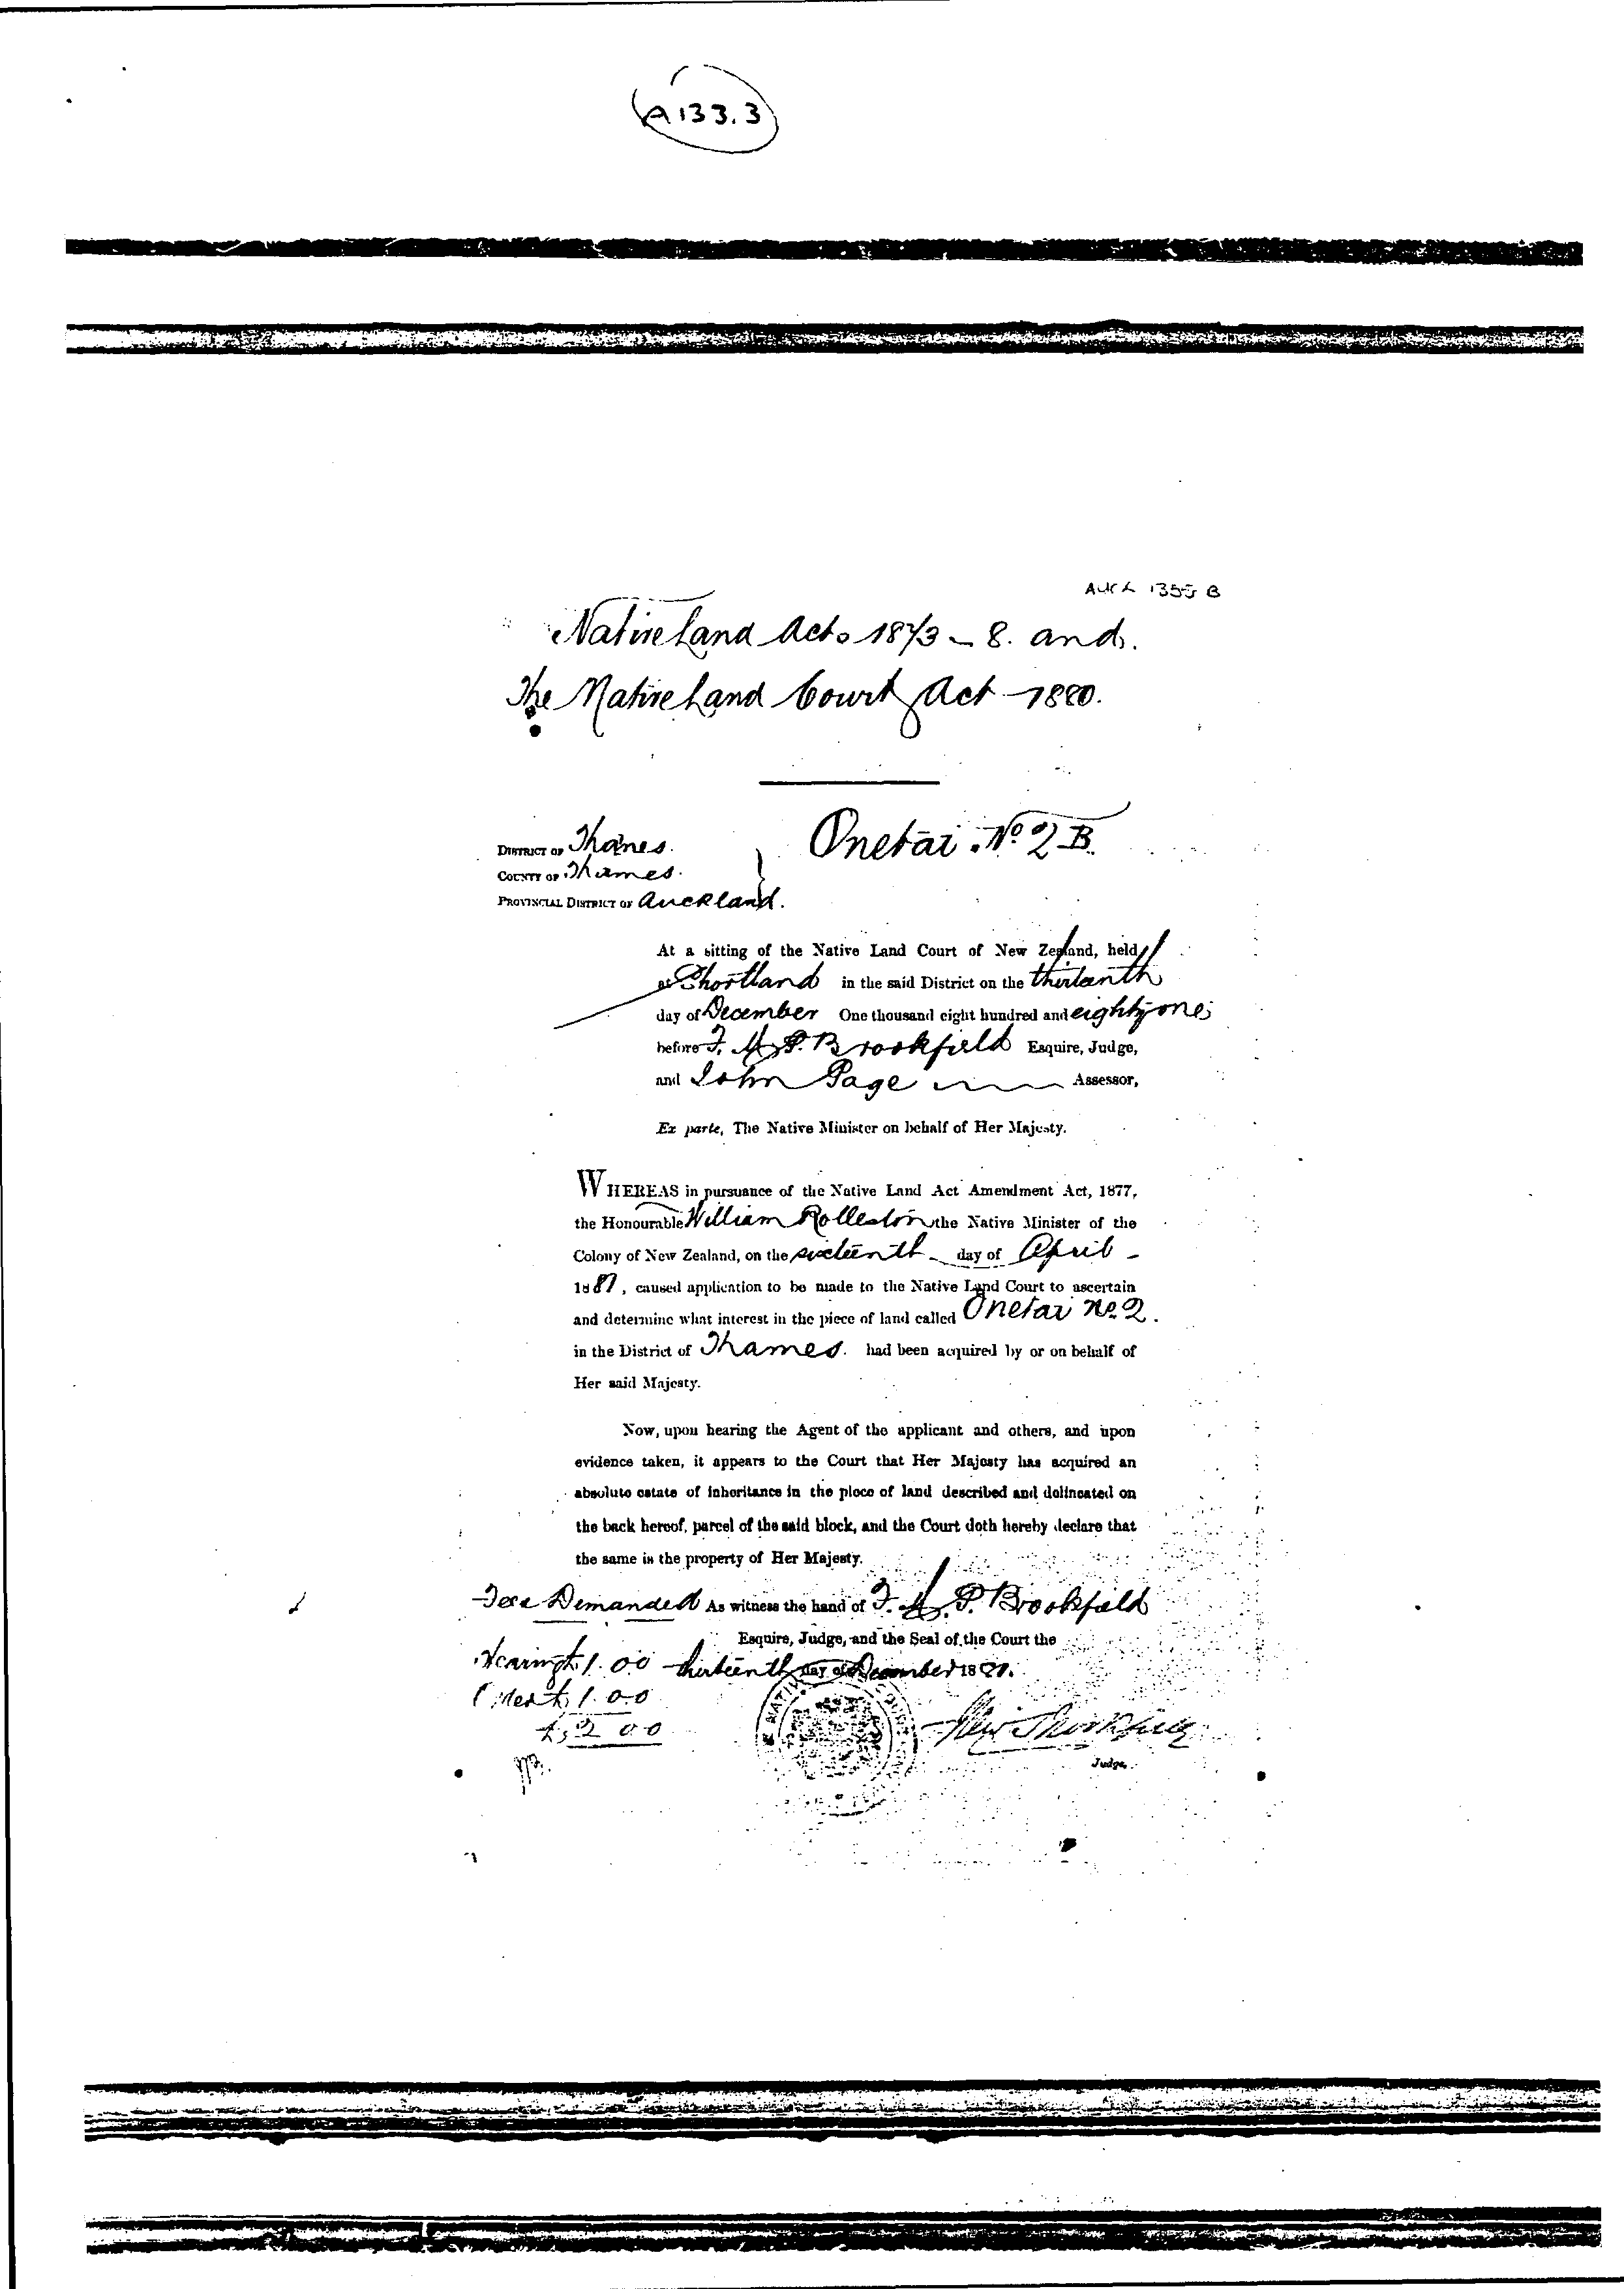 A133.3
Native Land Acts 1873-8. and.
The Native Land Court Act 1880.
DISTRICT OF Thames.
Onetai No 2 B.
COUNTY OF Thames.
PROVINCIAL DISTRICT OF Auckland.
At a sitting of the Native Land Court of New Zealand, held
at Shortland in the said District on the thirteenth
day of December One thousand eight hundred and eighty one
before F. M. P. Brookfield Esquire, Judge,
and John Page Assessor,
Ex parte, The Native Minister on behalf of Her Majesty.
WHEREAS in pursuance of the Native Land Act Amendment Act, 1877,
the Honourable William Rolleston the Native Minister of the
Colony of New Zealand, on the sixteenth day of April
1881, caused application to be made to the Native Land Court to ascertain
and determine what interest in the piece of land called Onetai No. 2.
in the District of Thames. had been acquired by or on behalf of
Her said Majesty.
Now, upon hearing the Agent of the applicant and others, and upon
evidence taken, it appears to the Court that Her Majesty has acquired an
absolute estate of inheritance in the piece of land described and delineated on
the back hereof, parcel of the said block, and the Court doth hereby declare that
the same is the property of Her Majesty.
Fees Demanded As witness the hand of F. M. P. Brookfield
Esquire, Judge, and the Seal of the Court the
Hearing £1.00 thirteenth day of December 1881.
Order £1.0.0
£2 0.0
Judge.